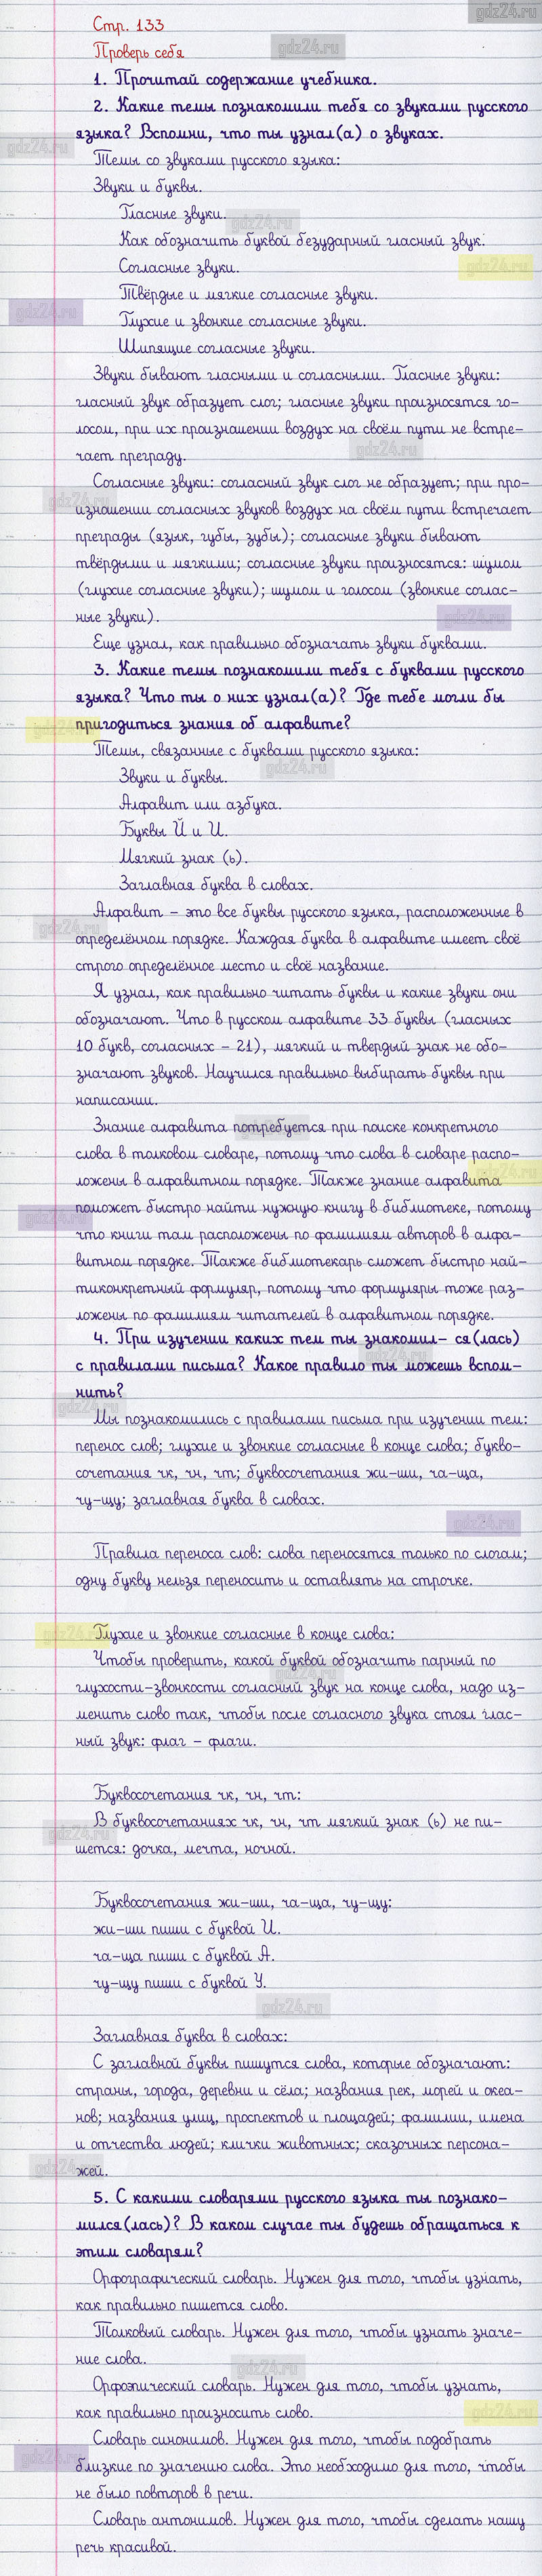 gdz24.ru
Стр. 133
Проверь себя
gdz24.ru
1. Прочитай содержание учебника.
2. Какие темы познакомили тебя со звуками русского
языка? Вспомни, что ты узнал(а) о звуках.
gdz24.ru
Темы со звуками русского языка:
Звуки и буквы.
Гласные звуки.
gdz24.ru
Как обозначить буквой безударный гласный звук.
Согласные звуки.
gdz24.ru
Твёрдые и мягкие согласные звуки.
gdz24.ru
Глухие и звонкие согласные звуки.
Шипящие согласные звуки.
Звуки бывают гласными и согласными. Гласные звуки:
гласный звук образует слог; гласные звуки произносятся го-
лосом, при их произношении воздух на своём пути не встре-
gdz24.ru
чает преграду.
Согласные звуки: согласный звук слог не образует; при про-
gdz24.ru
изношении согласных звуков воздух на своём пути встречает
преграды (язык, губы, зубы); согласные звуки бывают
твёрдыми и мягкими; согласные звуки произносятся: шумом
(глухие согласные звуки); шумом и голосом (звонкие соглас-
ные звуки).
gdz24.ru
Еще узнал, как правильно обозначать звуки буквами.
3. Какие темы познакомили тебя с буквами русского
языка? Что ты о них узнал(а)? Где тебе могли бы
gdz24.ru
пригодиться знания об алфавите?
Темы, связанные с буквами русского языка:
gdz24.ru
Звуки и буквы.
Алфавит или азбука.
Буквы Й и И.
Мягкий знак (ь).
Заглавная буква в словах.
Алфавит – это все буквы русского языка, расположенные в
gdz24.ru
определённом порядке. Каждая буква в алфавите имеет своё
строго определённое место и своё название.
Я узнал, как правильно читать буквы и какие звуки они
обозначают. Что в русском алфавите 33 буквы (гласных
10 букв, согласных – 21), мягкий и твердый знак не обо-
значают звуков. Научился правильно выбирать буквы при
написании.
gdz24.ru
Знание алфавита потребуется при поиске конкретного
слова в толковом словаре, потому что слова в словаре распо-
gdz24.ru
ложены в алфавитном порядке. Также знание алфавита
gdz24.ru
поможет быстро найти нужную книгу в библиотеке, потому
что книги там расположены по фамилиям авторов в алфа-
витном порядке. Также библиотекарь сможет быстро най-
тиконкретный формуляр, потому что формуляры тоже раз-
ложены по фамилиям читателей в алфавитном порядке.
4. При изучении каких тем ты знакомил- ся(лась)
gdz24.ru
с правилами письма? Какое правило ты можешь вспом-
нить?
gdz24.ru
Мы познакомились с правилами письма при изучении тем:
перенос слов; глухие и звонкие согласные в конце слова; букво-
сочетания чк, чн, чт; буквосочетания жи-ши, ча-ща,
чу-щу; заглавная буква в словах.
gdz24.ru
Правила переноса слов: слова переносятся только по слогам;
одну букву нельзя переносить и оставлять на строчке.
gdz24.ru
Глухие и звонкие согласные в конце слова:
Чтобы проверить, какой буквой обозначить парный по
gdz24.ru
глухости-звонкости согласный звук на конце слова, надо из-
менить слово так, чтобы после согласного звука стоял глас-
ный звук: флаг – флаги.
Буквосочетания чк, чн, чт:
В буквосочетаниях чк, чн, чт мягкий знак (ь) не пи-
gdz24.ru
шется: дочка, мечта, ночной.
Буквосочетания жи-ши, ча-ща, чу-щу:
жи-ши пиши с буквой И.
ча-ща пиши с буквой А.
чу-щу пиши с буквой У.
gdz24.ru
Заглавная буква в словах:
С заглавной буквы пишутся слова, которые обозначают:
страны, города, деревни и сёла; названия рек, морей и океа-
нов; названия улиц, проспектов и площадей; фамилии, имена
и отчества людей; клички животных; сказочных персона-
gdz24.ru
жей.
5. С какими словарями русского языка ты познако-
мился(лась)? В каком случае ты будешь обращаться к
этим словарям?
Орфографический словарь. Нужен для того, чтобы узнать,
как правильно пишется слово.
Толковый словарь. Нужен для того, чтобы узнать значе-
ние слова.
gdz24.ru
Орфоэпический словарь. Нужен для того, чтобы узнать,
как правильно произносить слово.
gdz24.ru
Словарь синонимов. Нужен для того, чтобы подобрать
gdz24.ru
близкие по значению слова. Это необходимо для того, чтобы
не было повторов в речи.
Словарь антонимов. Нужен для того, чтобы сделать нашу
речь красивой.